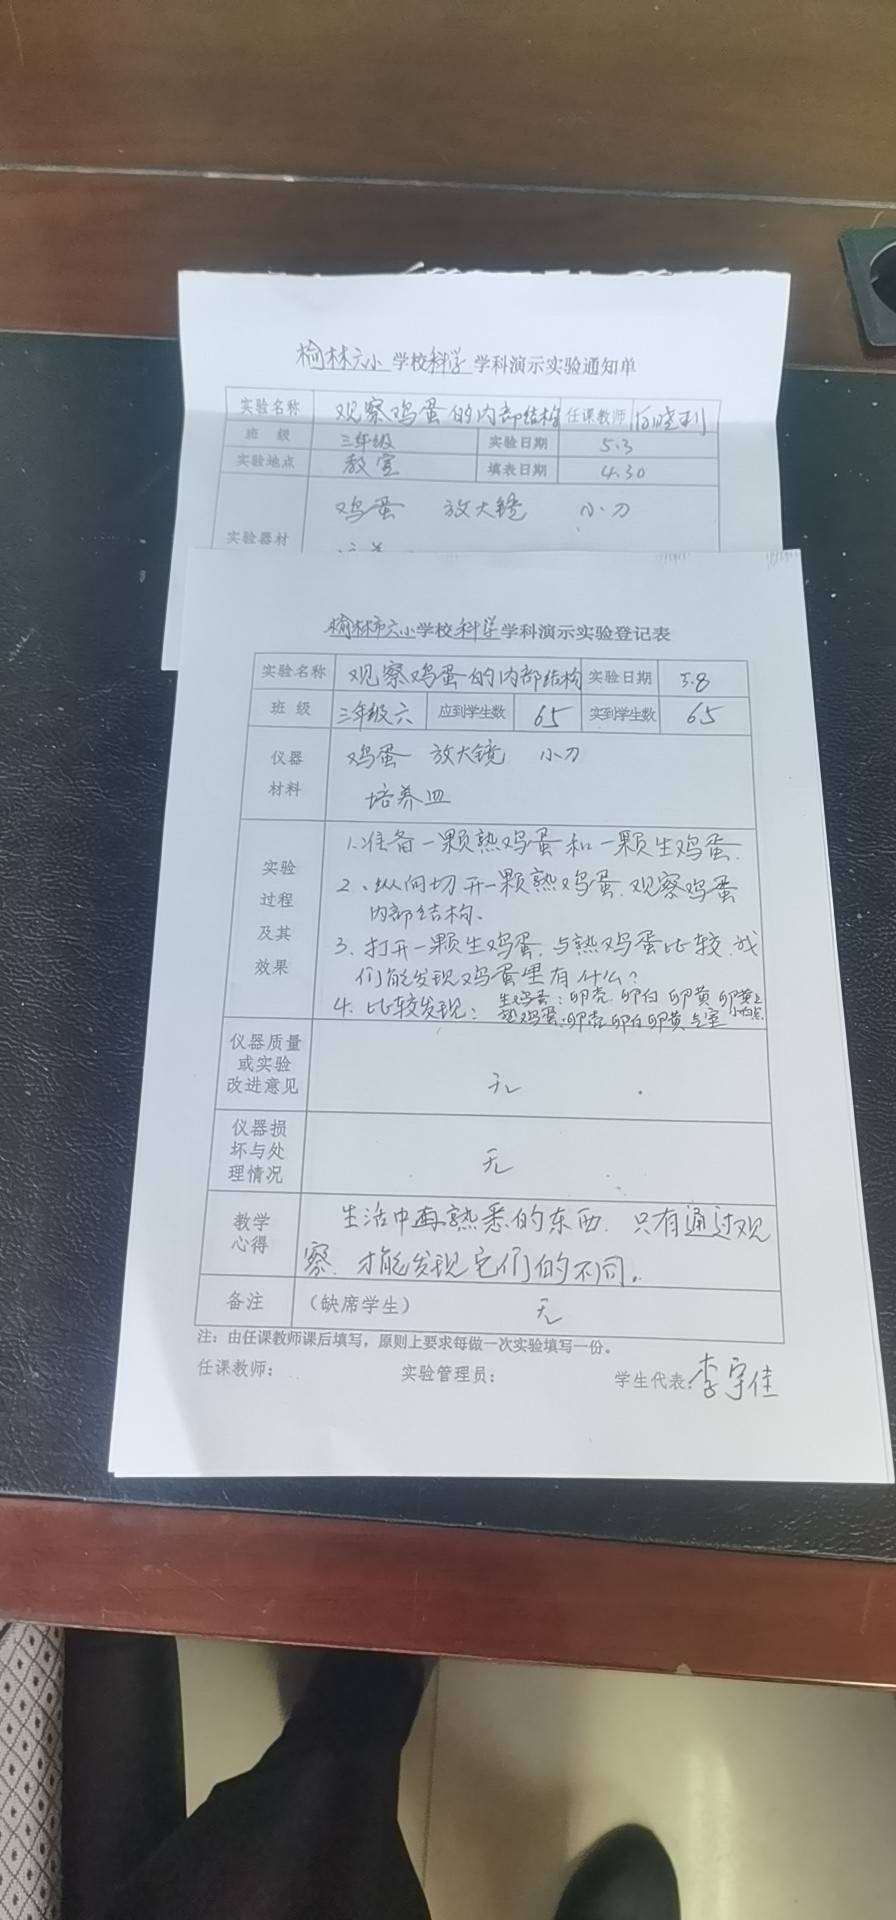 榆林六小学校科学学科演示实验通知单
实验名称 观察鸡蛋的内部结构 任课教师
班 级 三年级 实验日期 5.3
实验地点 教室 填表日期 4.30
实验器材 鸡蛋 放大镜 小刀
榆林市六小学校科学学科演示实验登记表
实验名称 观察鸡蛋的内部结构 实验日期 5.8
班 级 三年级六 应到学生数 65 实到学生数 65
仪器材料 鸡蛋 放大镜 小刀
培养皿
实验过程及其效果 1.准备一颗熟鸡蛋和一颗生鸡蛋.
2、纵向切开一颗熟鸡蛋.观察鸡蛋
内部结构.
3.打开一颗生鸡蛋.与熟鸡蛋比较.我
们能发现鸡蛋里有什么?
4.比较发现:生鸡蛋:卵壳 卵白 卵黄 卵黄上小白点
熟鸡蛋:卵壳 卵白 卵黄 气室
仪器质量或实验改进意见 无
仪器损坏与处理情况 无
教学心得 生活中再熟悉的东西.只有通过观
察.才能发现它们的不同。
备注 (缺席学生) 无
注:由任课教师课后填写,原则上要求每做一次实验填写一份。
任课教师: 实验管理员: 学生代表:李宇佳